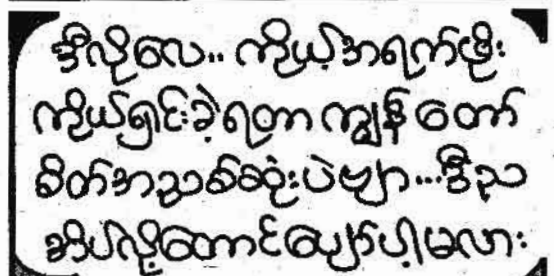 ဒီလိုလေ.. ကိုယ့်အရက်ဖိုး
ကိုယ်ရှင်းခဲ့ရတာ ကျွန်တော်
စိတ်အညစ်ဆုံးပဲဗျာ...ဒီည
အိပ်လို့တောင်ပျော်ပါ့မလား